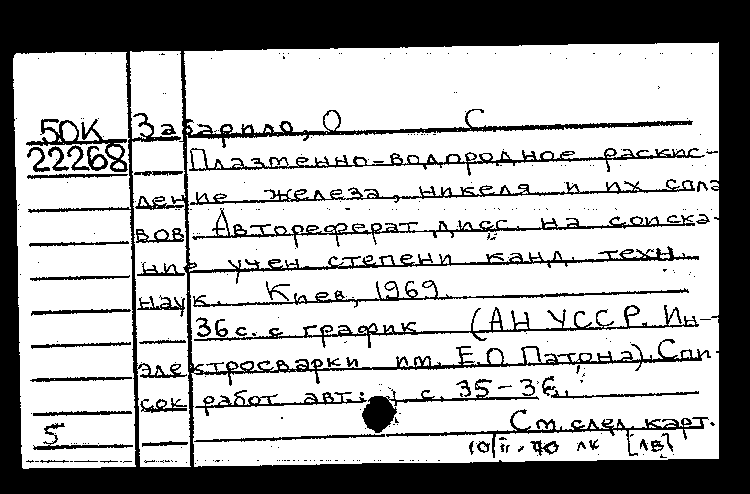 50К Забарило, О С
22268 Плазменно-водородное раскис-
ление железа, никеля и их спла
вов. Автореферат дисс. на соиска-
ние учен. степени канд. техн.
наук. Киев, 1969.
36 с. с график (АН УССР. Ин-
электросварки им. Е.О Патона). Спи-
сок работ авт.: с. 35-36.
5 См. след. карт.
10/II-70 лк [лв]